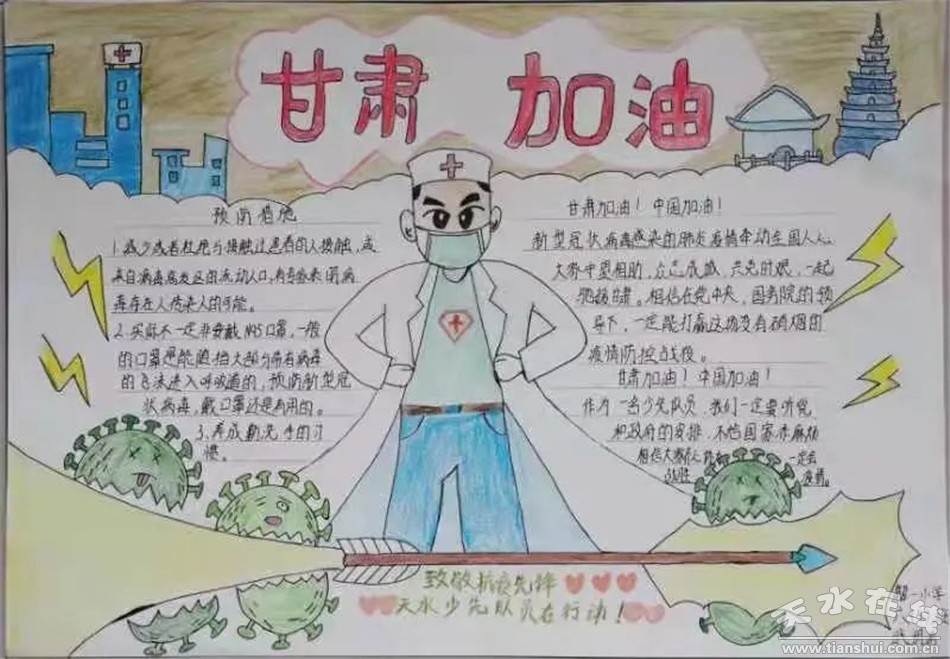 甘肃 加油
预防措施
1.减少或者杜绝与接触过患者的人接触,或
来自病毒高发区的流动人口,有专家表明病
毒存在人传染人的可能。
2.买不一定非要戴N95口罩,一般
的口罩还能阻挡大部分带有病毒
的飞沫进入呼吸道的,预防新型冠
状病毒,戴口罩还是有用的。
3.养成勤洗手的习
惯。
甘肃加油!中国加油!
新型冠状病毒感染的肺炎疫情牵动全国人心。
大家守望相助,众志成城,共克时艰,一起
驰援甘肃。相信在党中央,国务院的领
导下,一定能打赢这场没有硝烟的
疫情防控战役。
甘肃加油!中国加油!
作为一名少先队员,我们一定要听党
和政府的安排,不给国家添麻烦
相信大家 一定会
战胜 疫情。
致敬抗疫先锋
天水少先队员在行动!
一小学
天水在线
www.tianshui.com.cn